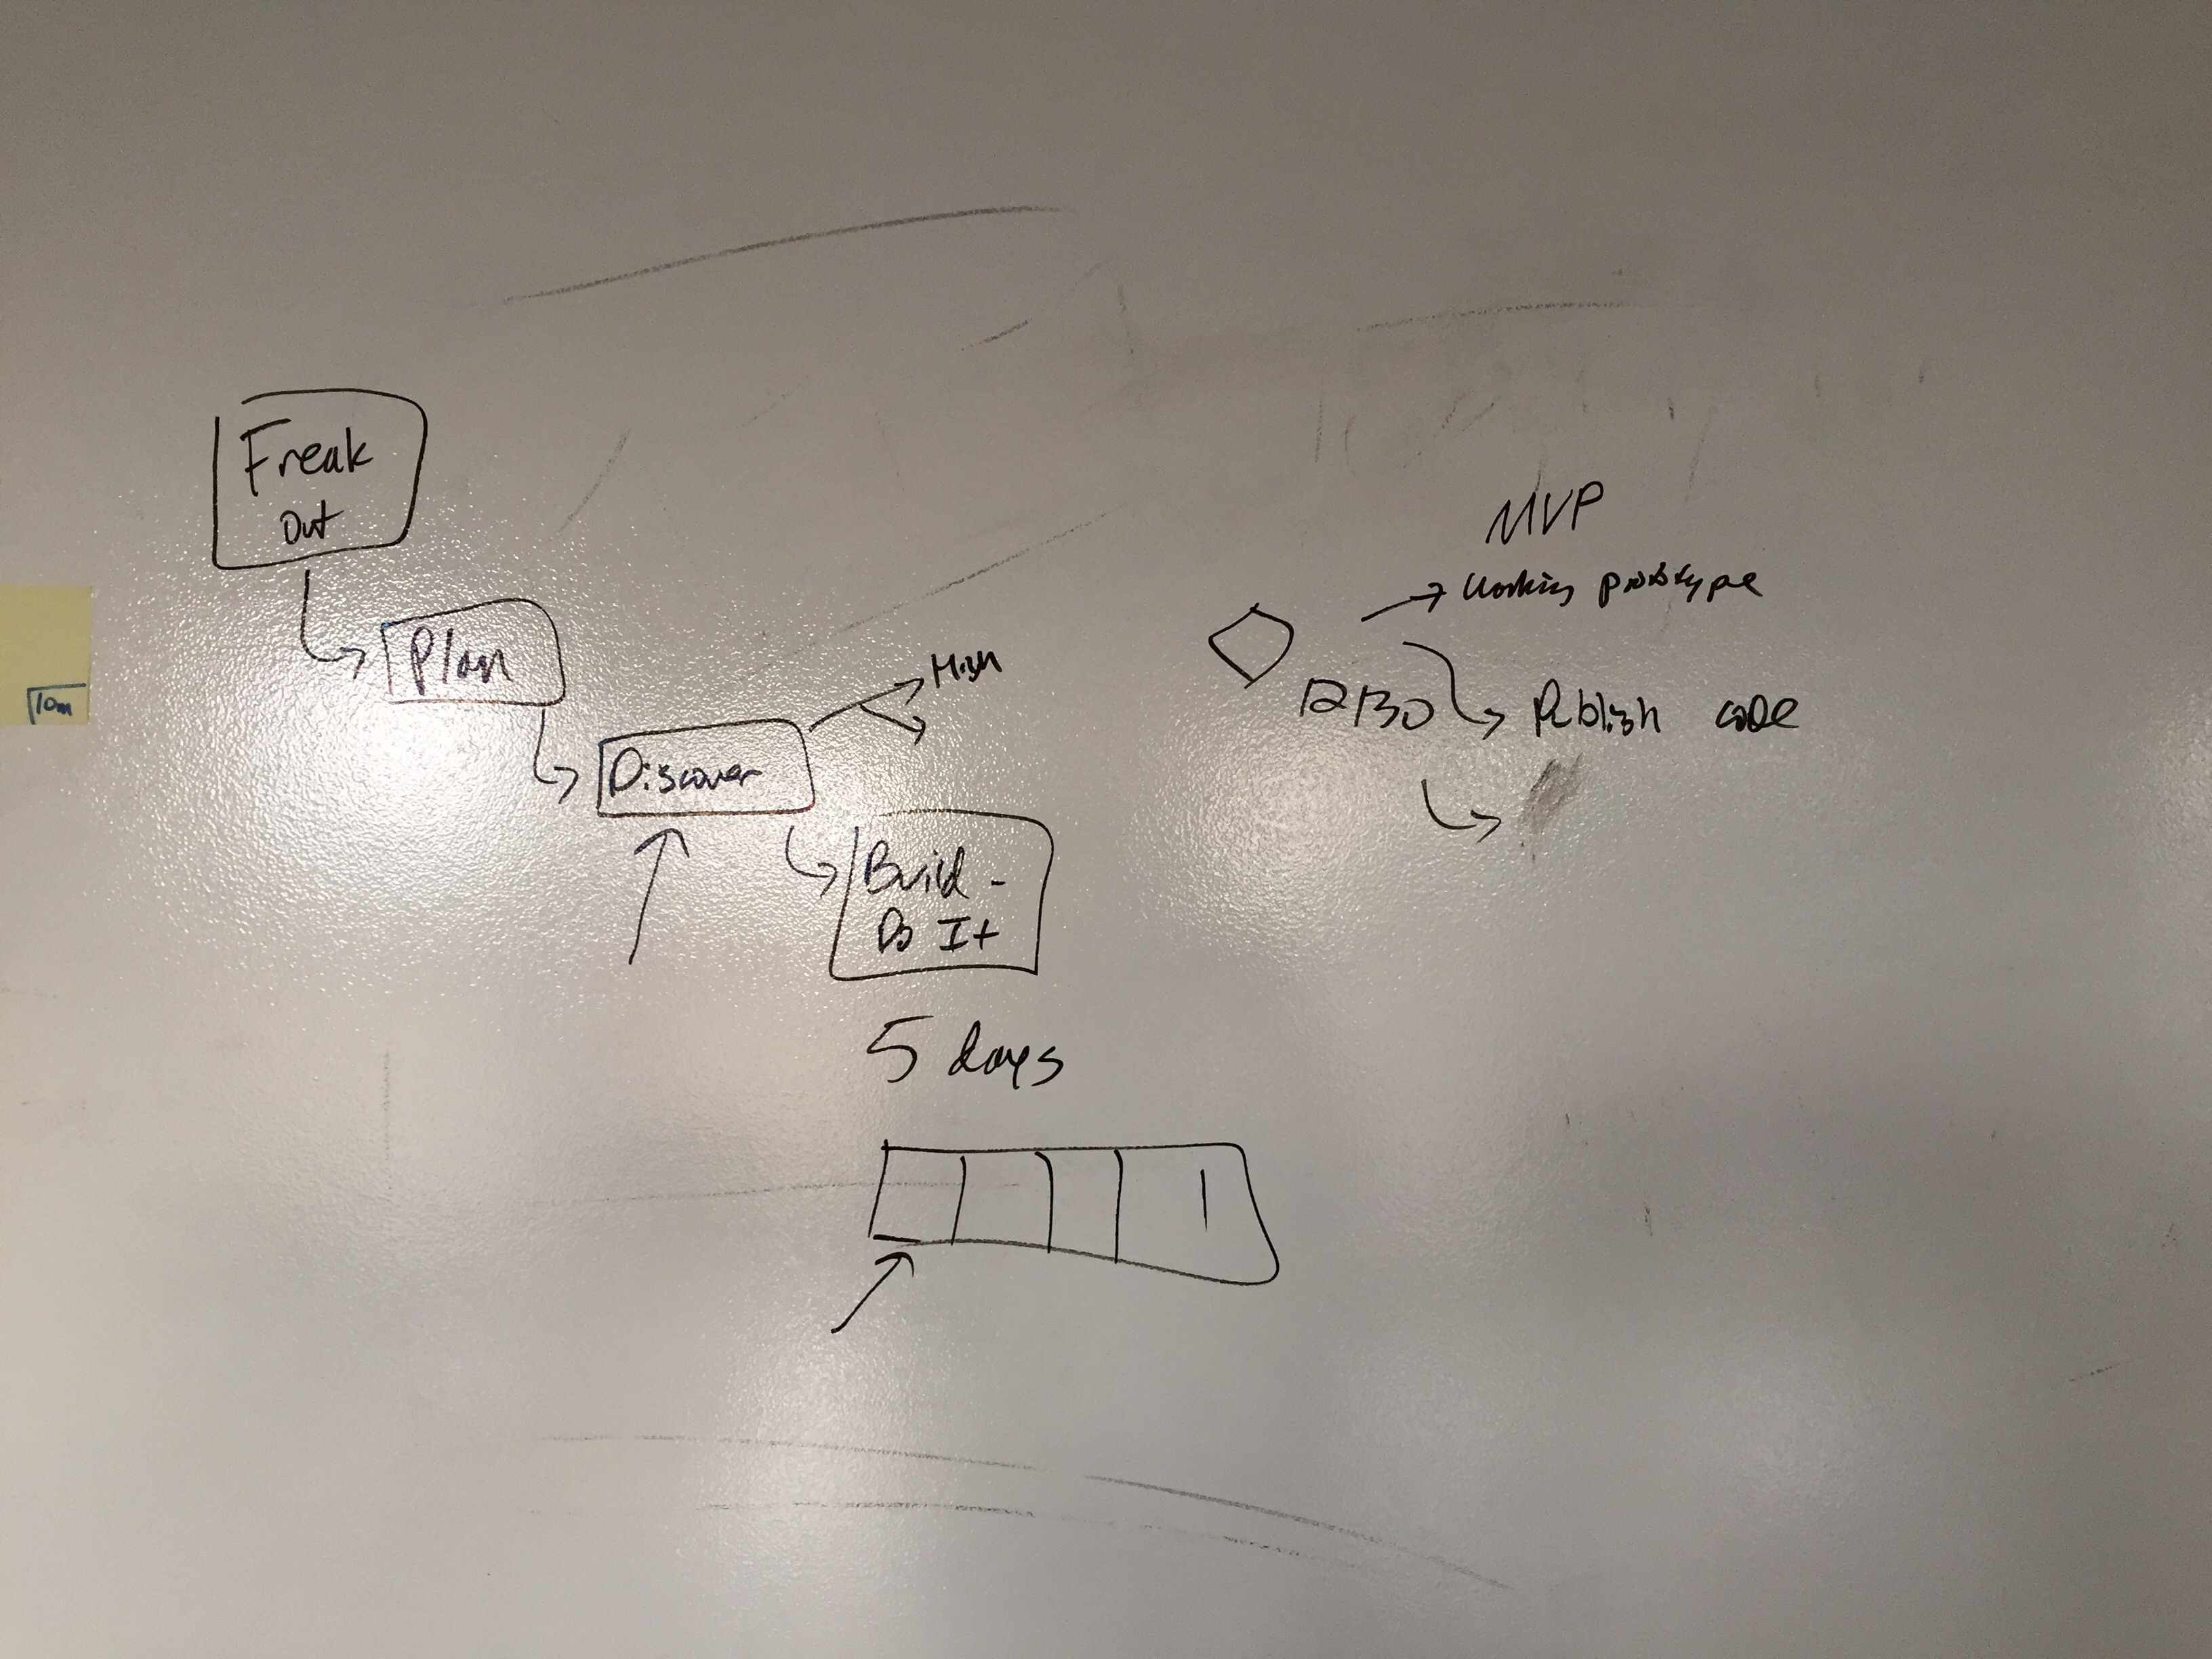 Freak
Out
Plan
10m
Discover
High
Build -
Do It
5 days
MVP
Working prototype
Publish code